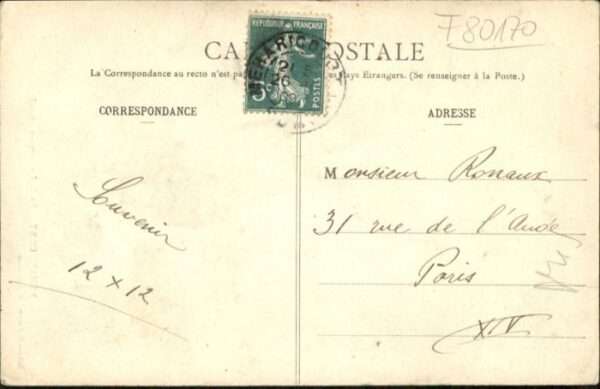 F80170
RÉPUBLIQUE FRANÇAISE
POSTES
5c
MÉHÉRICOURT
12
26
CA POSTALE
La Correspondance au recto n'est pas les Pays Étrangers. (Se renseigner à la Poste.)
CORRESPONDANCE
ADRESSE
Souvenir
12 x 12
Monsieur Ronaux
31 rue de l'Aude
Paris
XIV